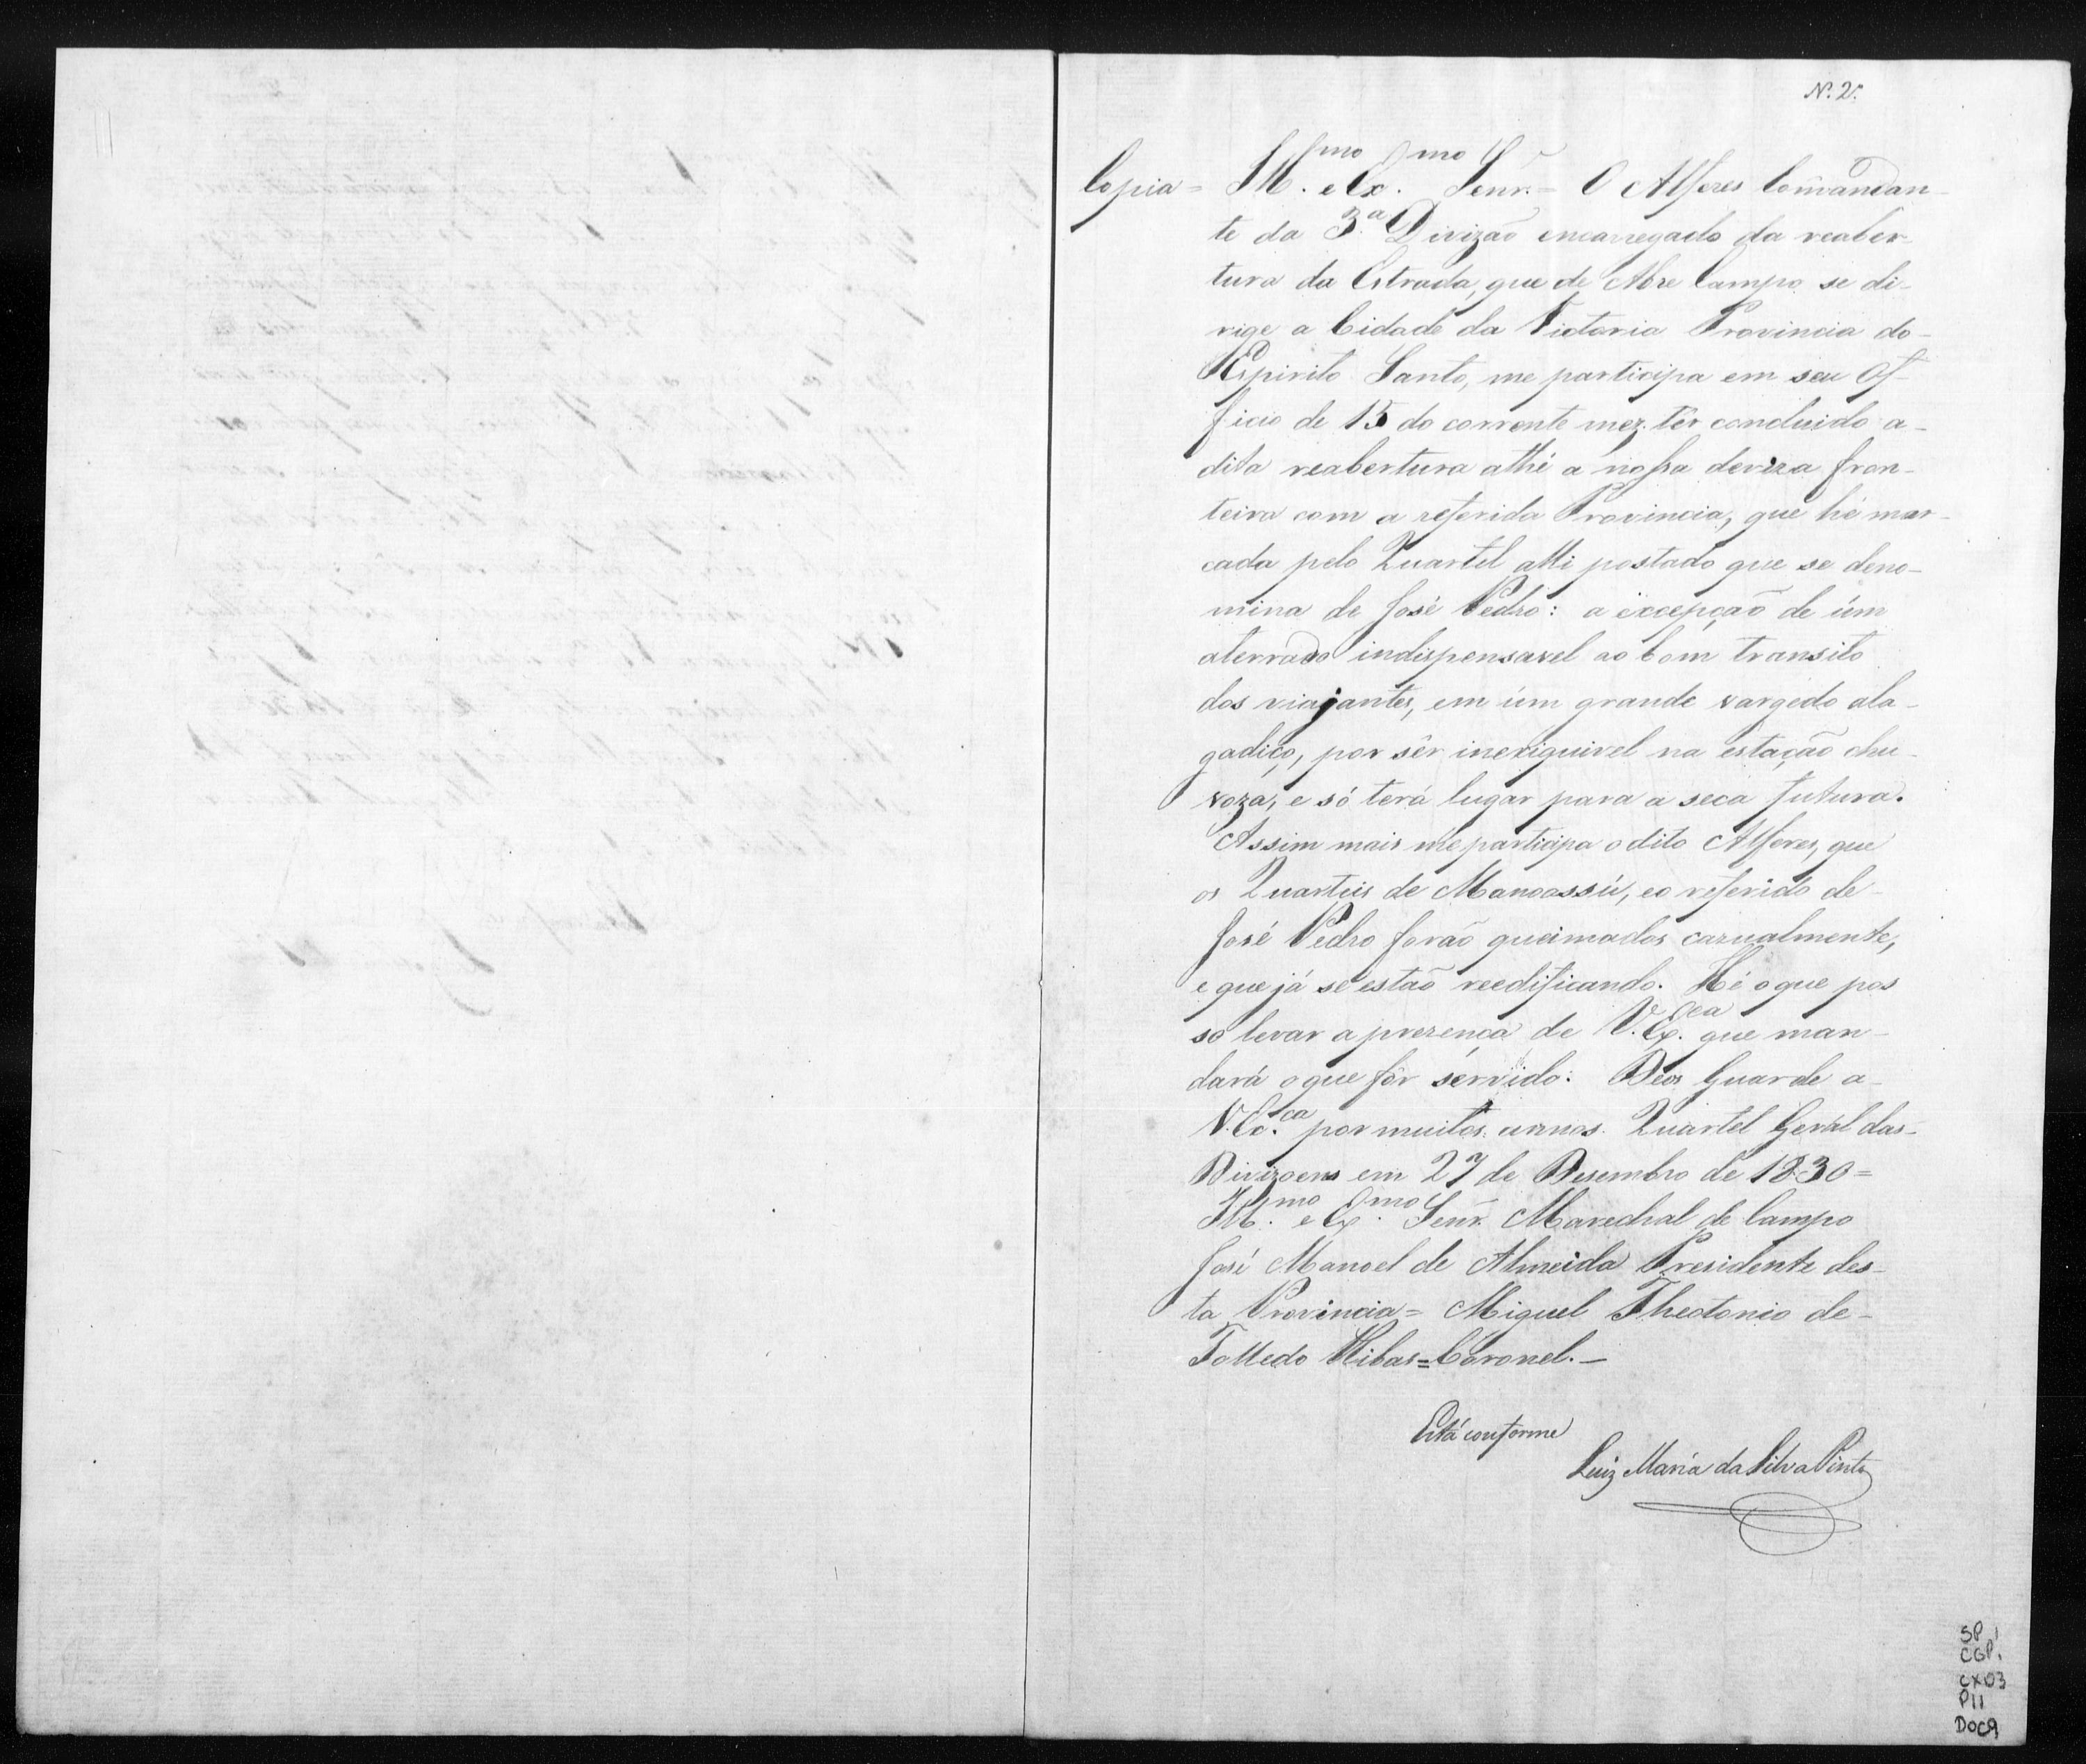 N.º 2.º
Copia = Ill.mo e Ex.mo Senr. = O Alferes Comandan-
te da 3.ª Divizão encarregado da reaber-
tura da Estrada, que de Abre Campo se di-
rige a Cidade da Victoria Provincia do
Espirito Santo, me participa em seu Of-
ficio de 15 do corrente mez têr concluido a
dita reabertura athé a nossa deviza fron-
teira com a referida Provincia, que hé mar-
cada pelo Quartel alli postado que se deno-
mina de José Pedro: a excepção de úm
aterrado indispensavel ao bom transito
dos viajantes, em úm grande vargedo ala-
gadiço, por sêr inexiquivel na estação chu-
voza, e só terá lugar para a seca futura.
Assim mais me participa o dito Alferes, que
os Quarteis de Manoassú, e o referido de
José Pedro forão queimados cazualmente,
e que já se estão reedificando. Hé o que pos
so levar a prezença de V. Ex.cea que man-
dará o que fôr servido: Deos Guarde a
V. Ex.ca por muitos annos. Quartel Geral das
Divizoens em 27 de Desembro de 1830 =
Ill.mo e Ex.mo Senr. Marechal de Campo
José Manoel de Almeida Presidente des-
ta Provincia = Miguel Theotonio de
Tolledo Ribas = Coronel. —
Está conforme
Luiz Maria da Silva Pinto
SP 1
CGP1
CX03
P11
DOC9